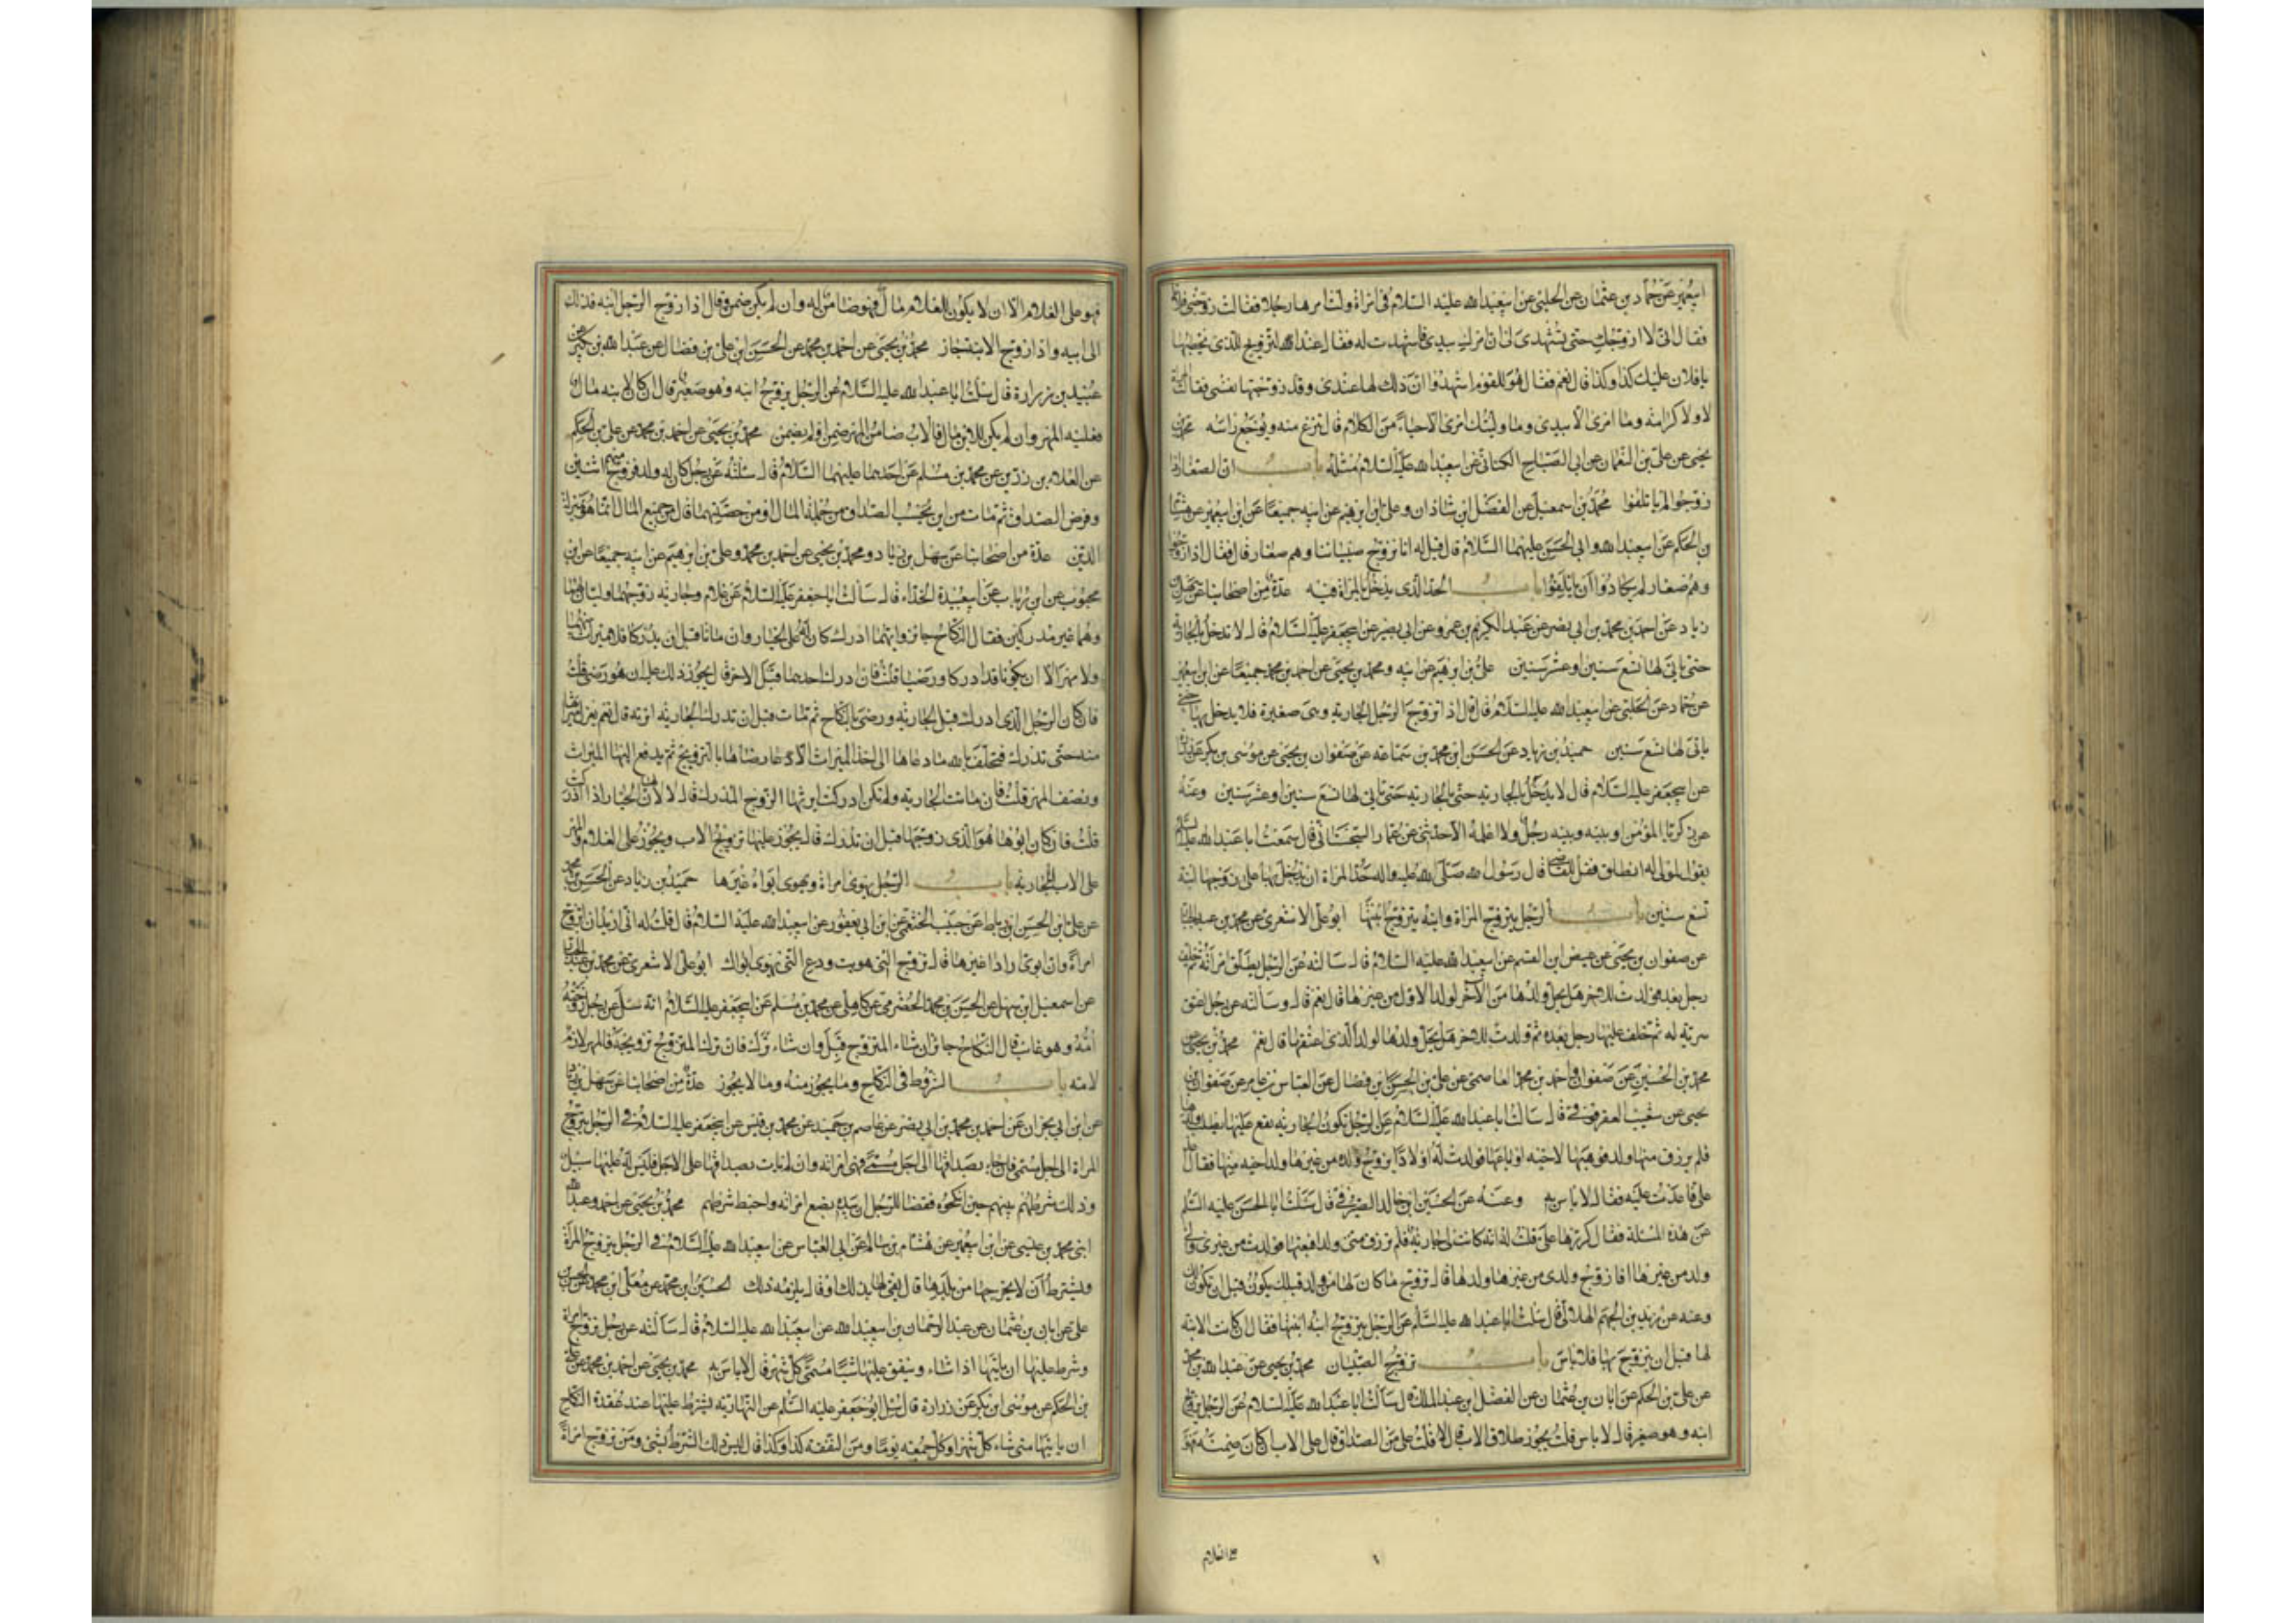 ابيعمير عن حماد بن عثمان عن الحلبي عن ابيعبد الله عليه السلام في امراة ولت امرها رجلا فقالت زوجني فلانا
فقال اني لا ازوجك حتى تشهدي لي ان امرك بيدي فاشهدت له فقال عند التزويج للذي يخطبها
يا فلان عليك كذا وكذا قال نعم فقال هو للقوم اشهدوا ان ذلك لها عندي وقد زوجتها نفسي فقالت المراة
لا ولا كرامة وما امري الا بيدي وما وليتك امري الا حياء من الكلام قال تنزع منه ويوجع راسه محمد بن
يحيى عن علي بن النعمان عن ابي الصباح الكناني عن ابيعبد الله عليه السلام مثله باب ان الصغار اذا
زوجوا لم ياتلفوا محمد بن اسمعيل عن الفضل ابن شاذان وعلي ابن ابرهيم عن ابيه جميعا عن ابن ابيعمير عن هشام
بن الحكم عن ابيعبد الله او ابي الحسن عليهما السلام قال قيل له انا نزوج صبياننا وهم صغار قال فقال اذا زوجوا
وهم صغار لم يكادوا ان ياتلفوا باب الحد الذي يدخل بالمراة فيه عدة من اصحابنا عن سهل بن
زياد عن احمد بن محمد بن ابي نصر عن عبد الكريم بن عمرو عن ابي بصير عن ابيجعفر عليه السلام قال لا تدخل بالجارية
حتى ياتي لها تسع سنين او عشر سنين علي بن ابرهيم عن ابيه ومحمد بن يحيى عن احمد بن محمد جميعا عن ابن ابيعمير
عن حماد عن الحلبي عن ابيعبد الله عليه السلام قال قال اذا تزوج الرجل الجارية وهي صغيرة فلا يدخل بها حتى
ياتي لها تسع سنين حميد بن زياد عن الحسن ابن محمد بن سماعة عن صفوان بن يحيى عن موسى بن بكر عن زرارة
عن ابيجعفر عليه السلام قال لا يدخل بالجارية حتى يا لجارية حتى ياتي لها تسع سنين او عشر سنين وعنه
عن زكريا المؤمن او بينه وبينه رجل ولا اعلمه الا حدثني عن عمار السجستاني قال سمعت ابا عبد الله عليه السلام
يقول لمولى له انطلق فقل للقاضي قال رسول الله صلى الله عليه واله حد المراة ان يدخل بها على زوجها ابنة
تسع سنين باب الرجل يتزوج المراة وابنه يتزوج ابنتها ابو علي الاشعري عن محمد بن عبد الجبار
عن صفوان بن يحيى عن عيص ابن القسم عن ابيعبد الله عليه السلام قال سالته عن الرجل يطلق امراته ثم خلف
رجل بعد فولدت للاخر هل يحل ولدها من الاخر لولد الاول من غيرها قال نعم قال وسالته عن رجل اعتق
سرية له ثم خلف عليها رجل بعده ثم ولدت للاخر هل يحل ولدها لولد الذي اعتقها قال نعم محمد بن يحيى عن
محمد بن الحسين عن صفوان واحمد بن محمد العاصمي عن علي بن الحسن بن فضال عن العباس بن عامر عن صفوان بن
يحيى عن شعيب العقرقوفي قال سالت ابا عبد الله عليه السلام عن الرجل تكون الجارية يقع عليها يطلب ولدها
فلم يرزق منها ولد فوهبها لاخيه او باعها فولدت له اولادا يزوج ولده من غيرها ولد اخيه منها فقال
علي فاعدت عليه فقال لا باس به وعنه عن الحسين ابن خالد الصيرفي قال سئلت ابا الحسن عليه السلم
عن هذه المسئلة فقال كررها علي قلت له انه كانت لي جارية فلم ترزق مني ولدا فبعتها فولدت من غيري ولي
ولد من غيرها افازوج ولدي من غيرها ولدها قال تزوج ما كان لها من ولد قبلك يكون قبل ان تكون لك
وعنه عن زيد بن الجهم الهلالي قال سئلت ابا عبد الله عليه السلم عن الرجل يتزوج ابنه ابنتها فقال ان كانت الابنة
لها قبل ان يتزوج بها فلا باس باب تزويج الصبيان محمد بن يحيى عن عبد الله بن محمد
عن علي بن الحكم عن ابان بن عثمان عن الفضل بن عبد الملك قال سالت ابا عبد الله عليه السلام عن الرجل يزوج
ابنه وهو صغير قال لا باس قلت يجوز طلاق الاب قال لا قلت على من الصداق قال على الاب ان كان ضمنه لهم
فهو على الغلام الا ان لا يكون للغلام مال فهو ضامن له وان لم يكن ضمن وقال اذا زوج الرجل ابنه فذلك
الى ابيه واذا زوج الابنة جاز محمد بن يحيى عن احمد بن محمد عن الحسن ابن علي بن فضال عن عبد الله بن بكير عن
عبيد بن زرارة قال سئلت ابا عبد الله عليه السلام عن الرجل يزوج ابنه وهو صغير قال ان كان لابنه مال
فعليه المهر وان لم يكن للابن مال فالاب ضامن المهر ضمن او لم يضمن محمد بن يحيى عن احمد بن محمد عن علي بن الحكم
عن العلاء بن رزين عن محمد بن مسلم عن احدهما عليهما السلام قال سئلته عن رجل كان له ولد فزوج منهم اثنين
وفرض الصداق ثم مات من اين يحسب الصداق من جملة المال او من حصتهما قال من جميع المال انما هو بمنزلة
الدين عدة من اصحابنا عن سهل بن زياد ومحمد بن يحيى عن احمد بن محمد وعلي بن ابرهيم عن ابيه جميعا عن ابن
محبوب عن ابن رياب عن ابيعبيدة الحذاء قال سالت ابا جعفر عليه السلام عن غلام وجارية زوجهما وليان لهما
وهما غير مدركين فقال النكاح جائز وايهما ادرك كان له على الخيار وان ماتا قبل ان يدركا فلا ميراث بينهما
ولا مهر الا ان يكونا قد ادركا ورضيا قلت فان ادرك احدهما قبل الاخر قال يجوز ذلك عليه ان هو رضي قلت
فان كان الرجل الذي ادرك قبل الجارية ورضي بالنكاح ثم مات قبل ان تدرك الجارية اترثه قال نعم يعزل ميراثها
منه حتى تدرك فتحلف بالله ما دعاها الى اخذ الميراث الا رضاها بالتزويج ثم يدفع اليها الميراث
ونصف المهر قلت فان ماتت الجارية ولم تكن ادركت ايرثها الزوج المدرك قال لا لان لها الخيار اذا ادركت
قلت فان كان ابوها هو الذي زوجها قبل ان تدرك قال يجوز عليها تزويج الاب ويجوز على الغلام والمهر
على الاب للجارية باب الرجل يهوى امراة ويهوى ابواه غيرها حميد بن زياد عن الحسن بن محمد
عن علي ابن الحسن ابن رباط عن حبيب الخثعمي عن ابن ابي يعفور عن ابيعبد الله عليه السلام قال قلت له اني اريد ان اتزوج
امراة وان ابوي ارادا غيرها قال تزوج التي هويت ودع التي يهوى ابواك ابو علي الاشعري عن محمد بن عبد الجبار
عن اسمعيل ابن سهل عن الحسن بن محمد الحضرمي عن كاهلي عن محمد بن مسلم عن ابيجعفر عليه السلام انه سئل عن رجل زوجته
امه وهو غايب قال النكاح جائز ان شاء المتزوج قبل وان شاء ترك فان ترك المتزوج تزويجه فالمهر لازم
لامه باب الشروط في النكاح وما يجوز منه وما لا يجوز عدة من اصحابنا عن سهل بن زياد
عن ابن ابي نجران عن احمد بن محمد بن ابي نصر عن عاصم بن حميد عن محمد بن قيس عن ابيجعفر عليه السلام في الرجل يتزوج
المراة الى اجل مسمى فان جاء بصداقها الى اجل مسمى فهي امراته وان لم يات بصداقها على الاجل فليس له عليها سبيل
وذلك شرطهم بينهم حين انكحوه فقضا للرجل ان بيده بضع امراته واحبط شرطهم محمد بن يحيى عن احمد وعبد الله
ابني محمد بن عيسى عن ابن ابيعمير عن هشام بن سالم عن ابي العباس عن ابيعبد الله عليه السلام في الرجل يتزوج المراة
ويشترط ان لا يخرجها من بلدها قال يفي لها بذلك او قال يلزمه ذلك الحسين ابن محمد عن معلى ابن محمد عن الحسن بن
علي عن ابان بن عثمان عن عبد الرحمان بن ابيعبد الله عن ابيعبد الله عليه السلام قال سالته عن رجل تزوج امراة
وشرط عليها ان ياتيها اذا شاء وينفق عليها شيئا مسمى كل شهر قال لا باس به محمد بن يحيى عن احمد بن محمد عن علي
بن الحكم عن موسى ابن بكر عن زرارة قال سئل ابو جعفر عليه السلم عن النهارية يشترط عليها عند عقدة النكاح
ان ياتيها متى شاء كل شهر او كل جمعة يوما ومن النفقة كذا وكذا قال ليس ذلك الشرط بشي ومن تزوج امراة